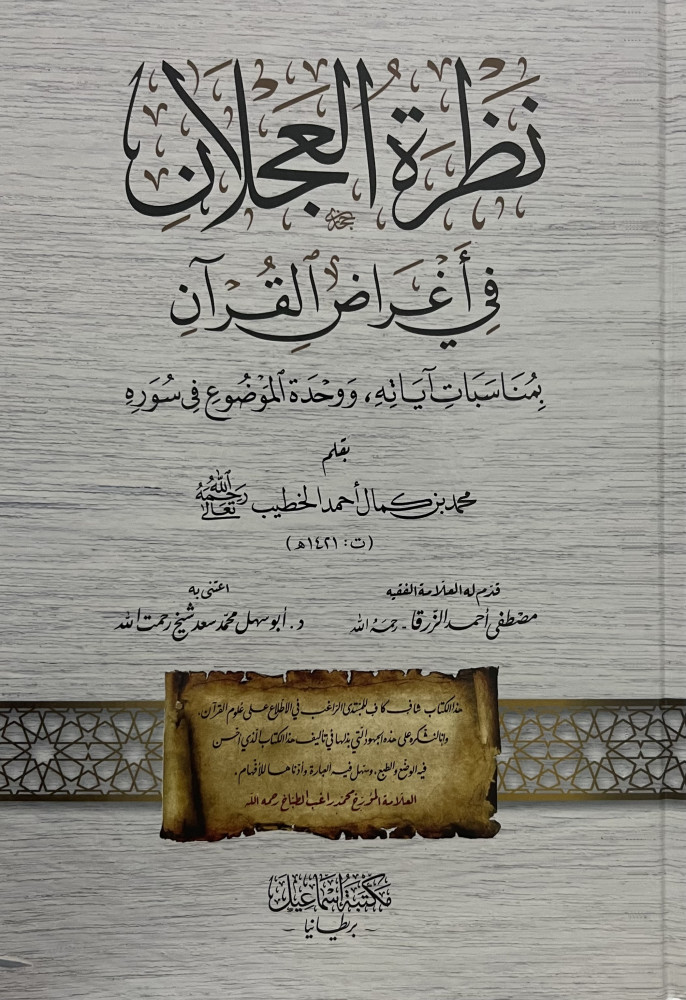 نَظْرَةُ العَجْلَانِ
فِي أَغْرَاضِ القُرْآنِ
بِمُنَاسَبَاتِ آيَاتِهِ، وَوَحْدَةِ المَوْضُوعِ فِي سُوَرِهِ
بقلم
محمد بن كمال أحمد الخطيب رَحِمَهُ اللَّهُ تَعَالَى
(ت: ١٤٢١هـ)
قدّم له العلّامة الفقيه
مصطفى أحمد الزّرقا - رحمه الله
اعتنى به
د. أبو سهل محمّد سعد شيخ رحمت الله
هذا الكتاب شافٍ كافٍ للمبتدئ الراغب في الاطلاع على علوم القرآن،
وإنا لنشكره على هذه الجهود التي بذلها في تأليف هذا الكتاب الذي أحسن
فيه الوضع والطبع، وسهل فيه العبارة وأدناها للأفهام.
العلامة المؤرخ محمد راغب الطباخ رحمه الله
مكتبة إسماعيل
- بريطانيا -